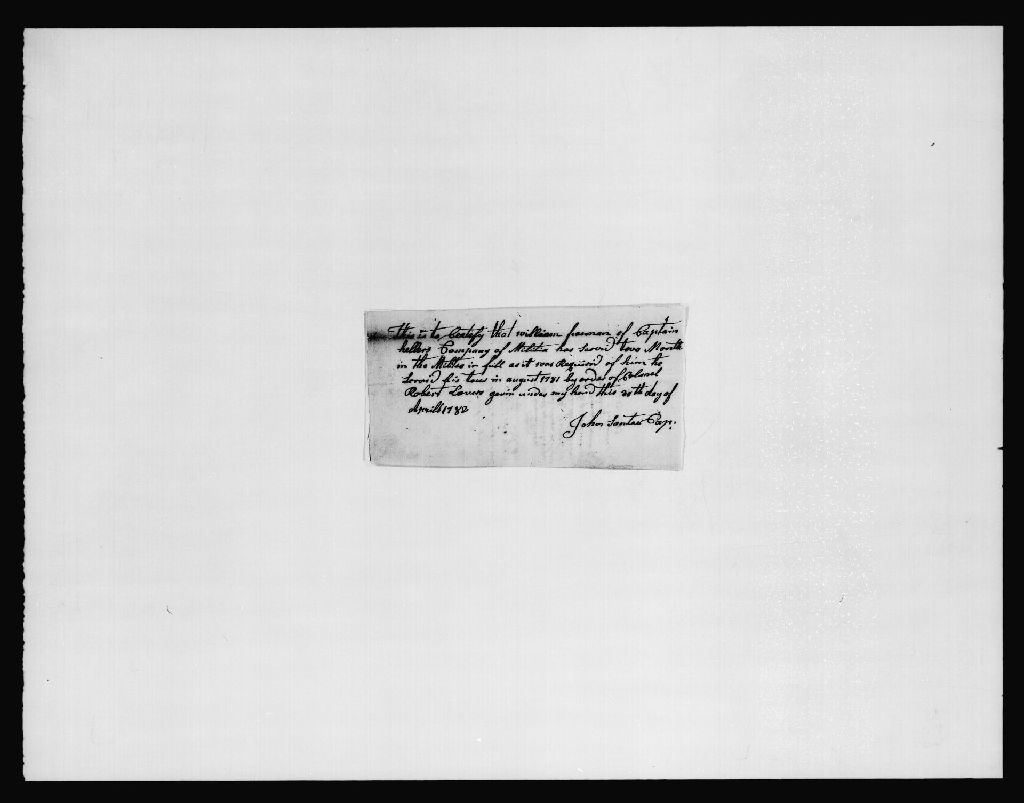 this is to Certefy that william freeman of Captain
hellers Company of Militia has served tow Month
in the Militia in full as it was Required of him to
Served his tour in august 1781 by order of Colonel
Robert gevin under my hand this 20th day of
Aprill 1782
John Cap.